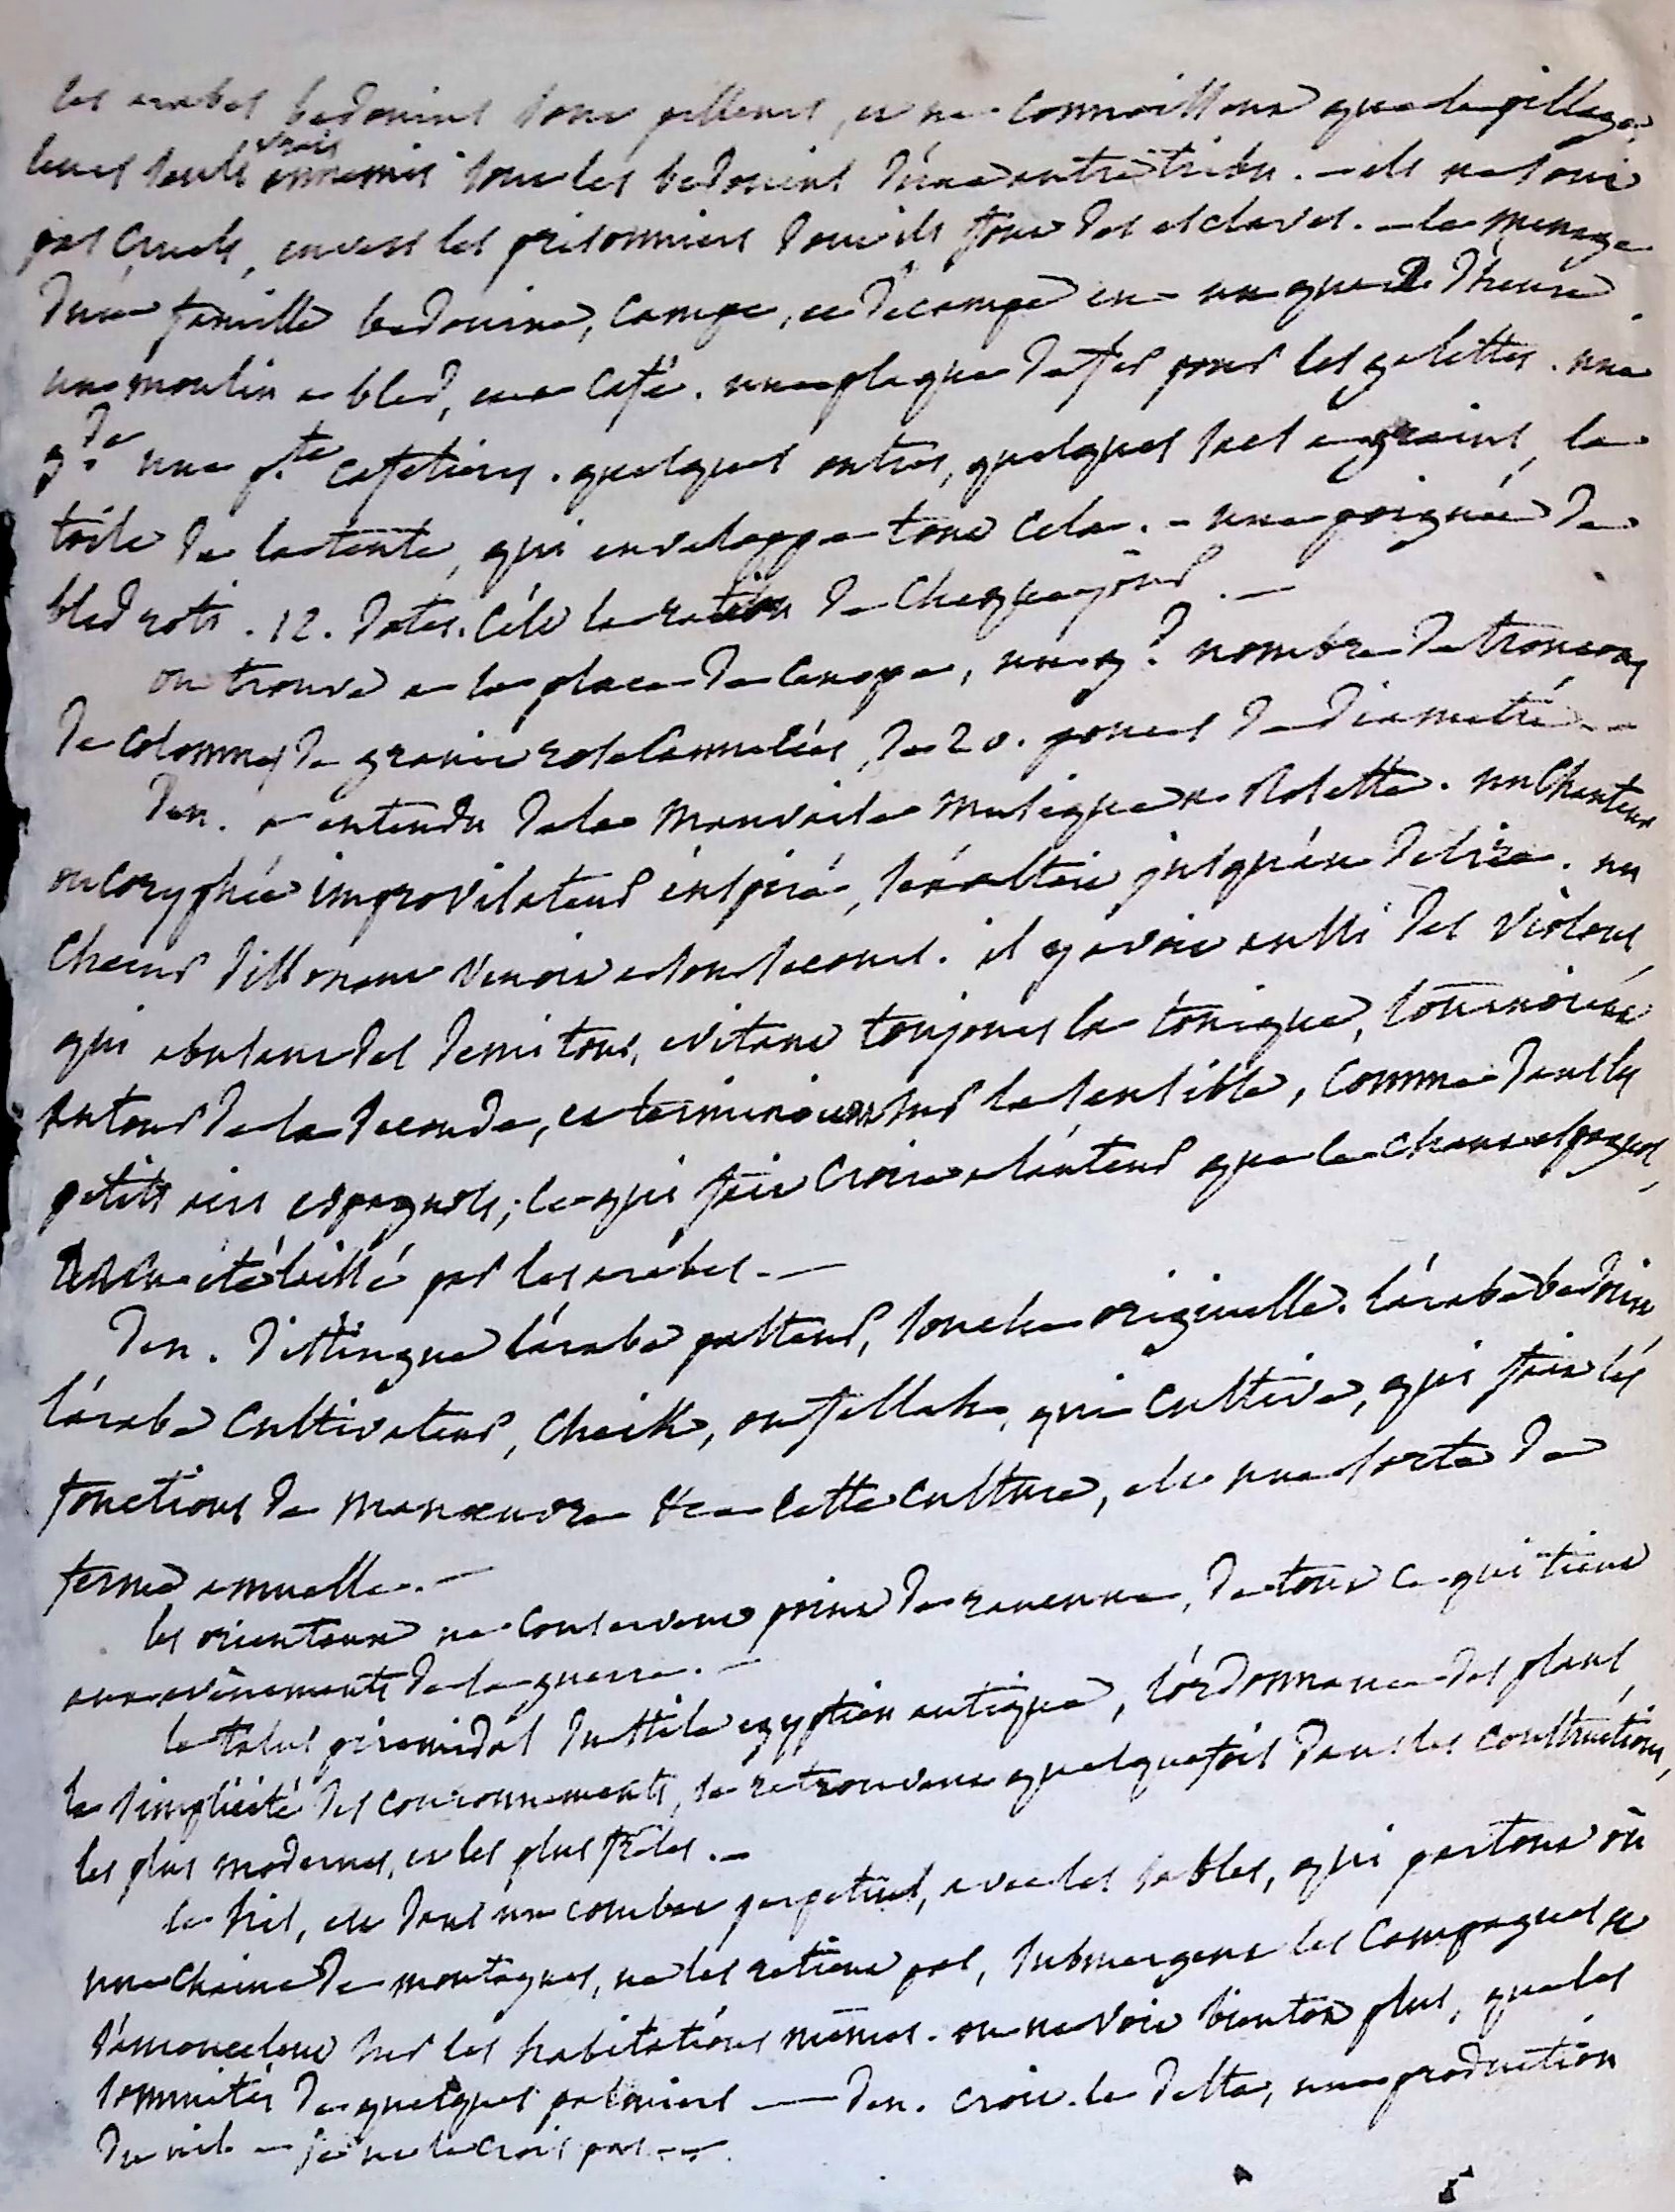 les arabes bedouins sont pilleurs, et ne connoissent que le pillage.
leurs seuls vrais ennemis sont les bedouins d'une autre tribu. - ils ne sont
pas cruels, envers les prisonniers dont ils font des esclaves. - le menage
d'une famille bedouine, campe, et decampe en un quart d'heure
un moulin a bled, et a café. une plaque de fer pour les galettes. une
gde une pte cafetieres. quelques outres, quelques sacs a grains, la
toile de la tente, qui enveloppe tout cela. - une poignée de
bled roti. 12. dates. c'est la ration de chaque jour. -
on trouve a la place de Canope, un gd nombre de troncons
de colonnes de granit rose cannelées, de 20. pouces de diametre -
Den. a entendu de la mauvaise musique a Rosette. un chanteur
ou coryphée improvisateur inspiré, s'exaltoit jusqu'au delire. un
choeur dissonant venoit a son secours. il y avoit aussi des violons,
qui abusant des demi tons, evitant toujours la tonique, tournoient
autour de la seconde, et terminoient sur la sensible, comme dans les
petits airs espagnols; ce qui fait croire a l'auteur que le chant espagnol,
a été laissé par les arabes. -
Den. distingue l'arabe pasteur, souche originelle. l'arabe bedouin
l'arabe cultivateur, cheik, ou fellah, qui cultive, qui fait les
fonctions de manoeuvre &c a cette culture, est une sorte de
ferme annuelle. -
les orientaux ne conservent point de rancune, de tout ce qui tient
aux evènements de la guerre. -
le talus piramidal du stile egyptien antique, l'ordonnance des plans,
la simplicité des couronnements, se retrouvent quelquefois dans les constructions,
les plus modernes, et les plus frêles. -
le Nil, est dans un combat perpetuel, avec les sables, qui partout où
une chaine de montagnes, ne les retient pas, submergent les campagnes et
s'amoncelent sur les habitations mêmes. on ne voit bientôt plus, que les
sommités de quelques palmiers - Den. croit le delta, une production
du nil - je ne le crois pas -